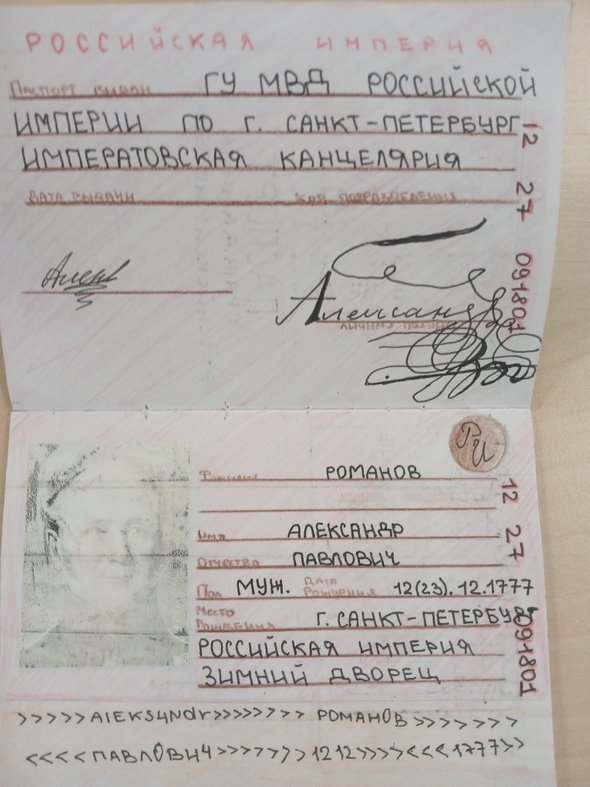 РОССИЙСКАЯ ИМПЕРИЯ
Паспорт выдан ГУ МВД РОССИЙСКОЙ
ИМПЕРИИ ПО Г. САНКТ-ПЕТЕРБУРГ
ИМПЕРАТОВСКАЯ КАНЦЕЛЯРИЯ
ДАТА ВЫДАЧИ КОД ПОДРАЗДЕЛЕНИЯ
12 27 091801
Александр
РИ
Фамилия РОМАНОВ
Имя АЛЕКСАНДР
Отчество ПАВЛОВИЧ
Пол МУЖ. ДАТА РОЖДЕНИЯ 12(23).12.1777
МЕСТО РОЖДЕНИЯ Г. САНКТ-ПЕТЕРБУРГ
РОССИЙСКАЯ ИМПЕРИЯ
ЗИМНИЙ ДВОРЕЦ
12 27 091801
>>>>>AlEKS4Ndr>>>>>>>> РОМАНОВ>>>>>>>
<<<<ПАВЛОВИЧ>>>>>>>1212>>>><<<1777>>